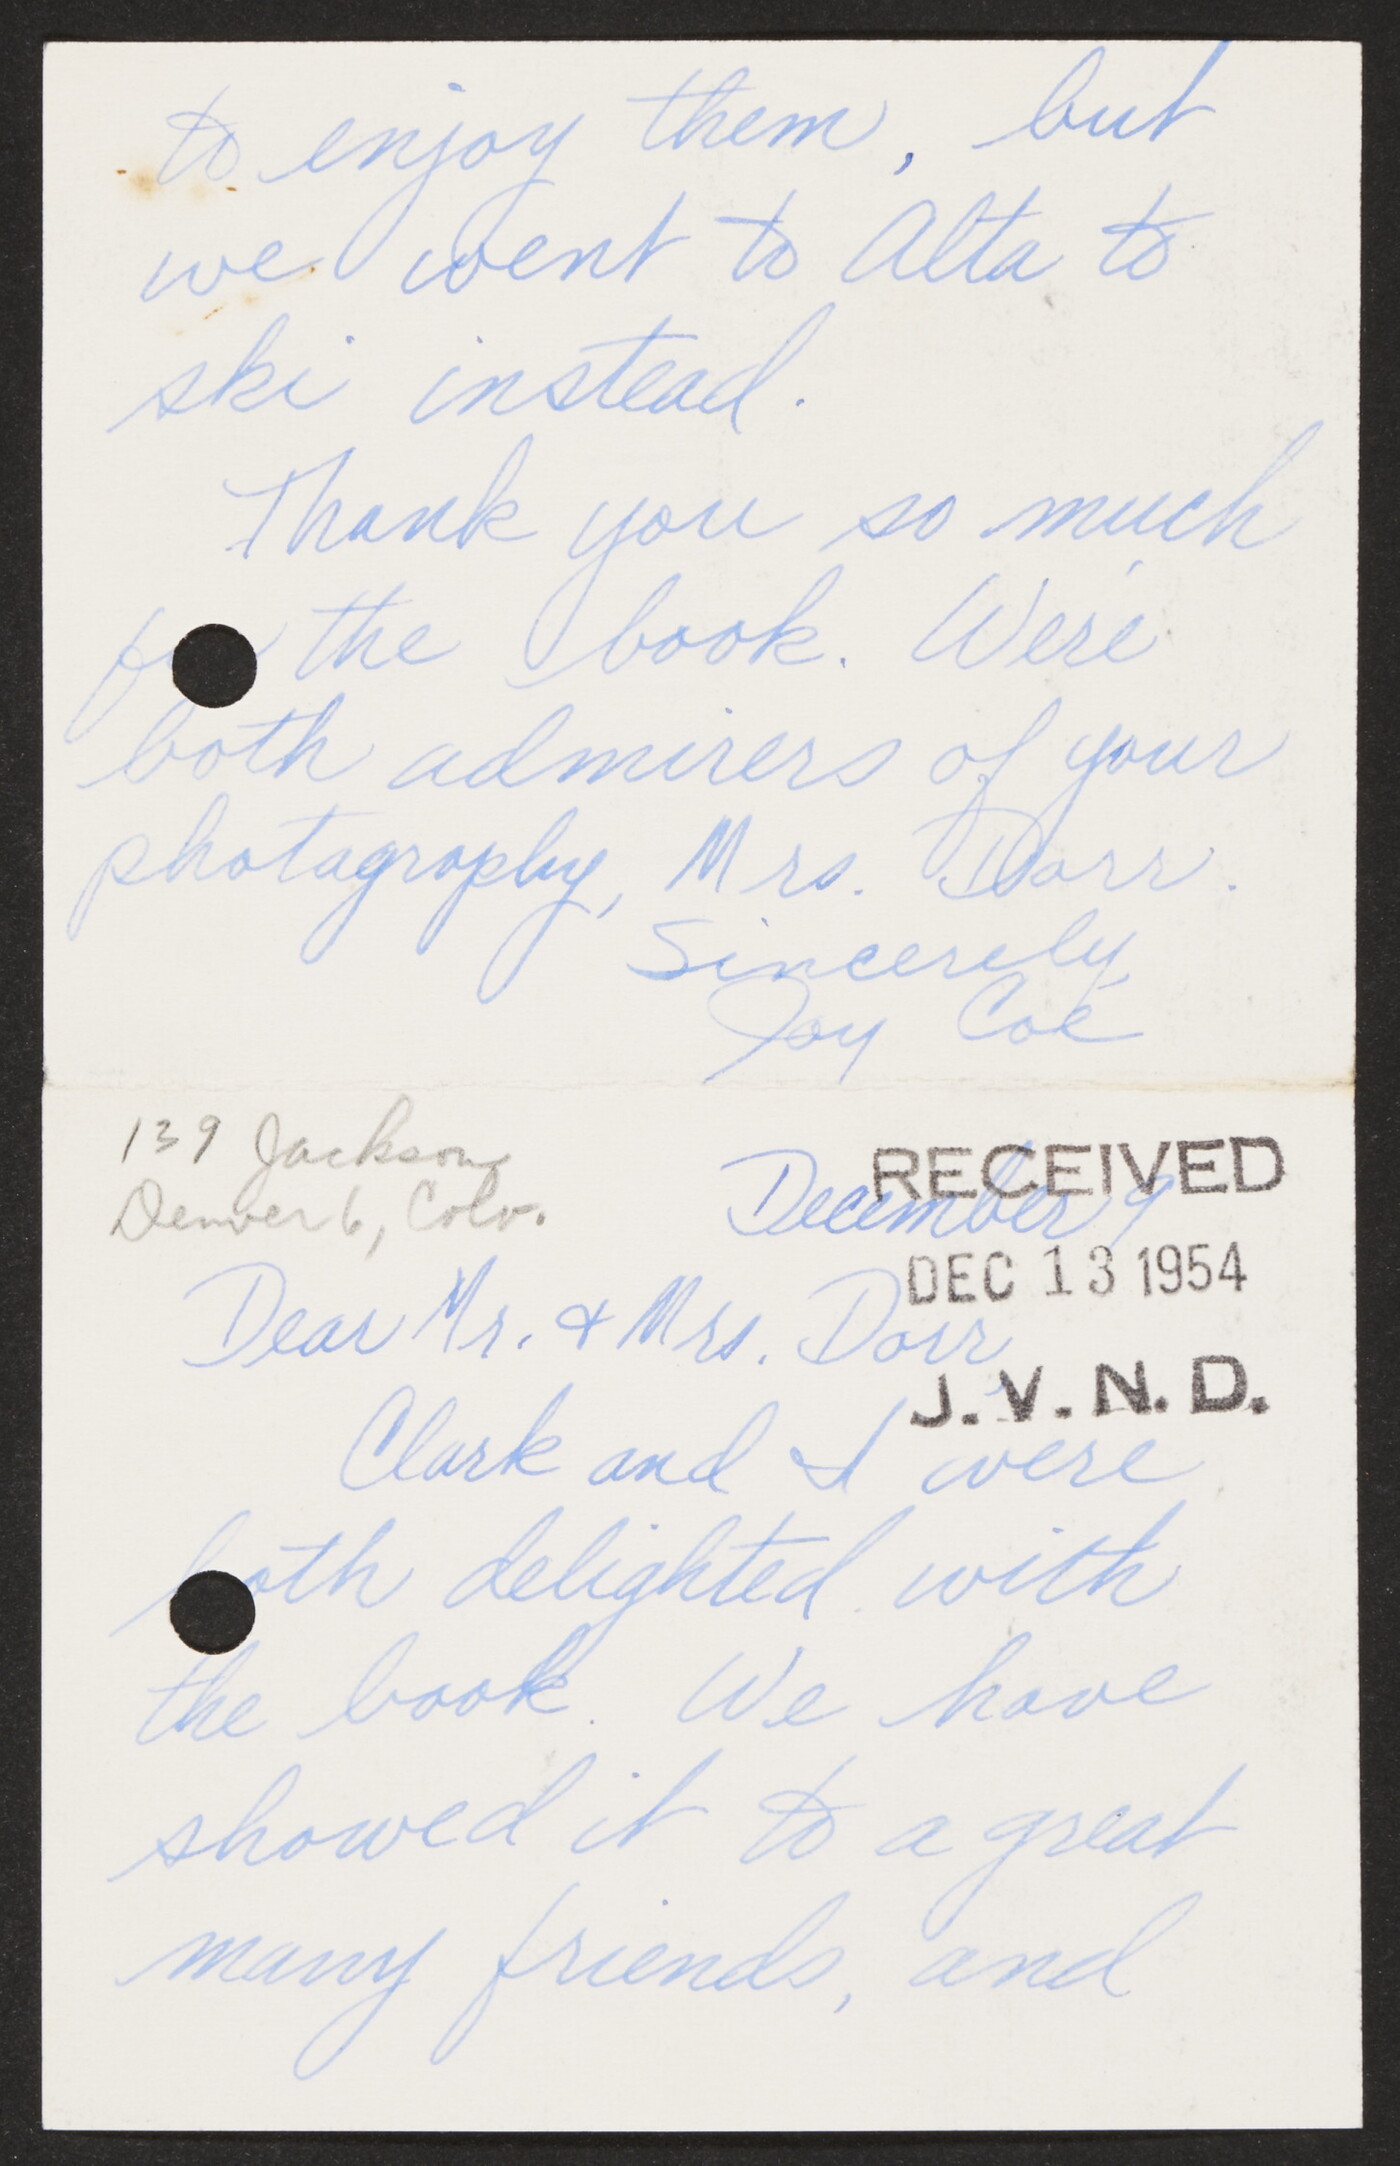 to enjoy them, but
we went to Alta to
ski instead.
Thank you so much
the book. We're
both admirers of your
photography, Mrs. Dorr.
Sincerely,
Joy Coe
139 Jackson
Denver 6, Colo.
December 9
RECEIVED
DEC 13 1954
J.V.N.D.
Dear Mr. & Mrs. Dorr,
Clark and I were
both delighted with
the book. We have
showed it to a great
many friends, and